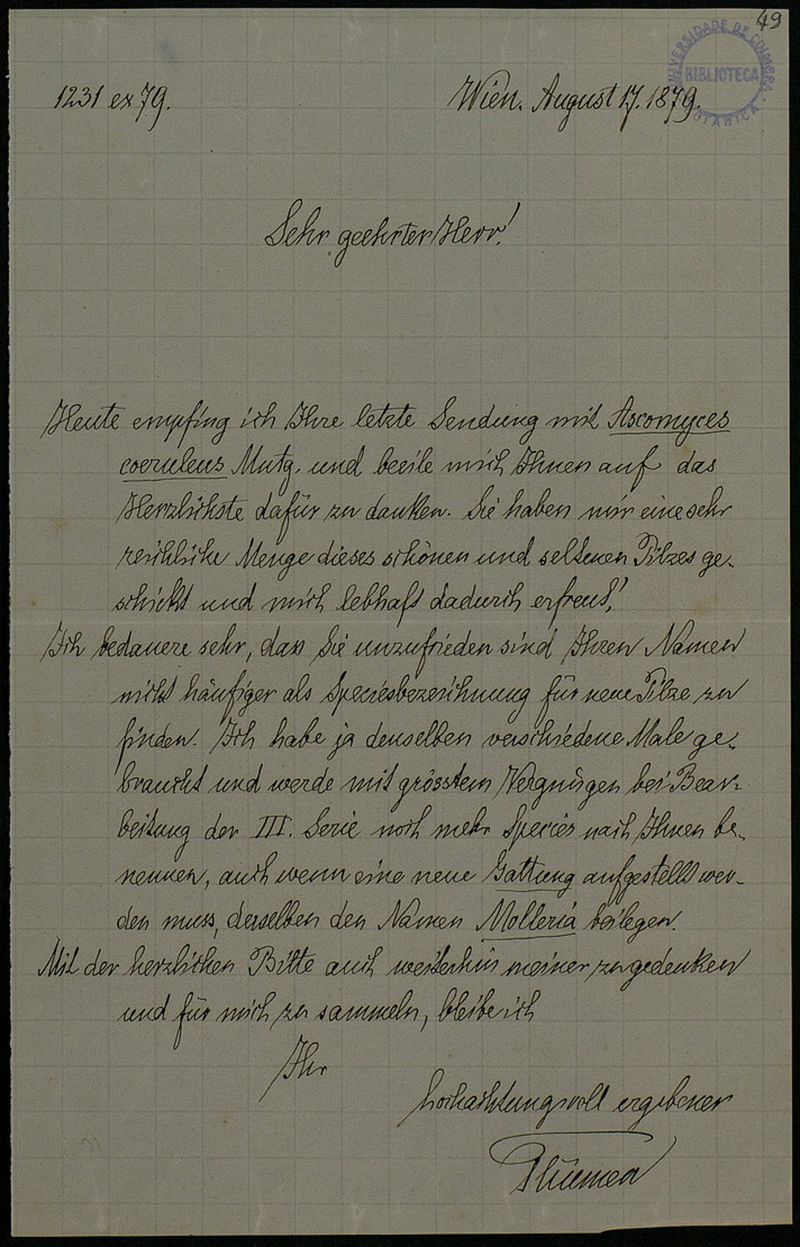 49
UNIVERSIDADE DE COIMBRA
BIBLIOTECA
BOTANICA
1231 ex 79.
Wien. August 17. 1879.
Sehr geehrter Herr!
Heute empfing ich Ihre letzte Sendung mit Ascomyces
coeruleus Mntg. und beeile mich Ihnen auf das
Herzlichste dafür zu danken. Sie haben mir eine sehr
reichliche Menge dieses schönen und seltenen Pilzes ge-
schickt und mich lebhaft dadurch erfreut!
Ich bedauere sehr, dass Sie unzufrieden sind Ihren Namen
nicht häufiger als Speciesbezeichnung für neue Pilze zu
finden. Ich habe ja denselben verschiedene Male ge-
braucht und werde mit grösstem Vergnügen bei Bear-
beitung der III. Serie noch mehr Species nach Ihnen be-
nennen, auch wenn eine neue Gattung aufgestellt wer-
den muss, derselben den Namen Molleria beilegen.
Mit der herzlichen Bitte auch weiterhin meiner zu gedenken
und für mich zu sammeln, bleibe ich
Ihr
hochachtungsvoll ergebener
Thümen